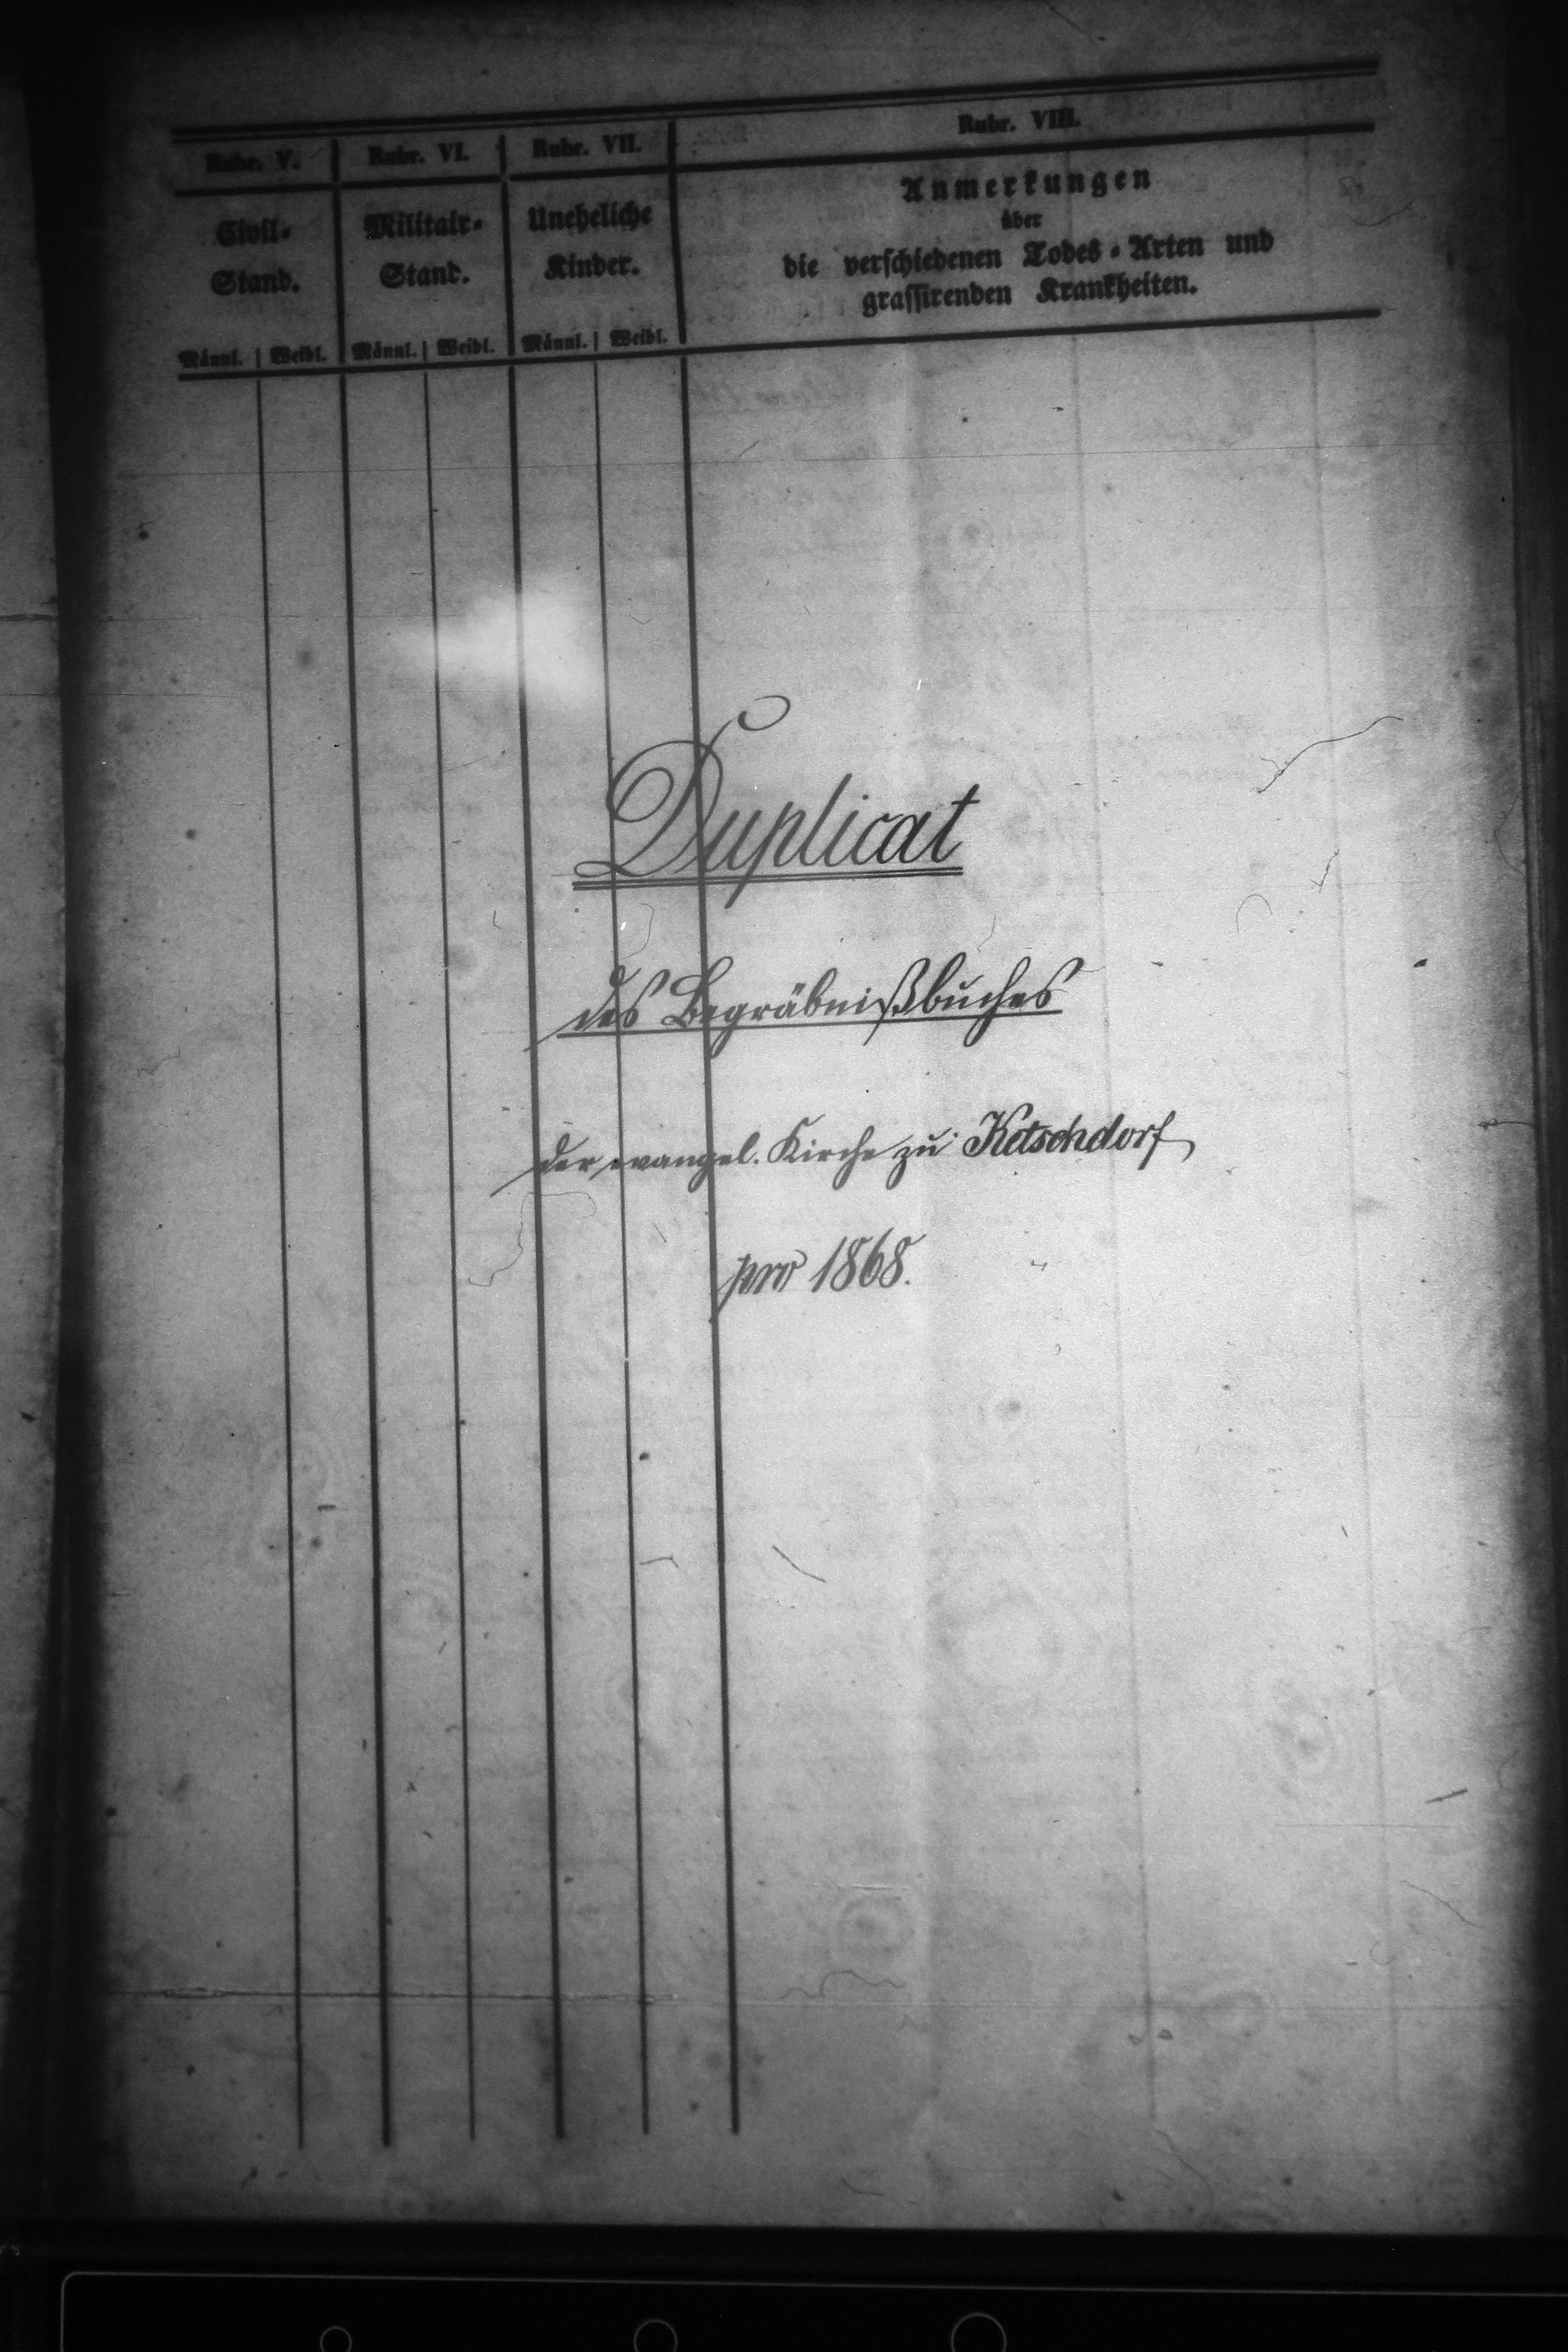 Rubr. V. Rubr. VI. Rubr. VII. Rubr. VIII.
Civil- Militair- Uneheliche Anmerkungen
Stand. Stand. Kinder. über
die verschiedenen Todes-Arten und
grassirenden Krankheiten.
Männl. Weibl. Männl. Weibl. Männl. Weibl.
Duplicat
des Begräbnißbuches
der evangel. Kirche zu Ketschdorf
pro 1868.